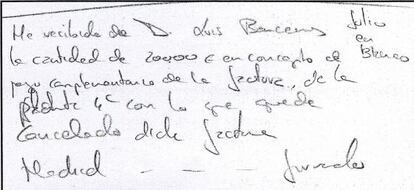 He recibido de D. Luis Barcenas
la cantidad de 20000 € en concepto de
pago complementario de la factura, de la
planta 4ª con lo que queda
Cancelada dicha factura
Madrid - - -
Julio
en
Blanco